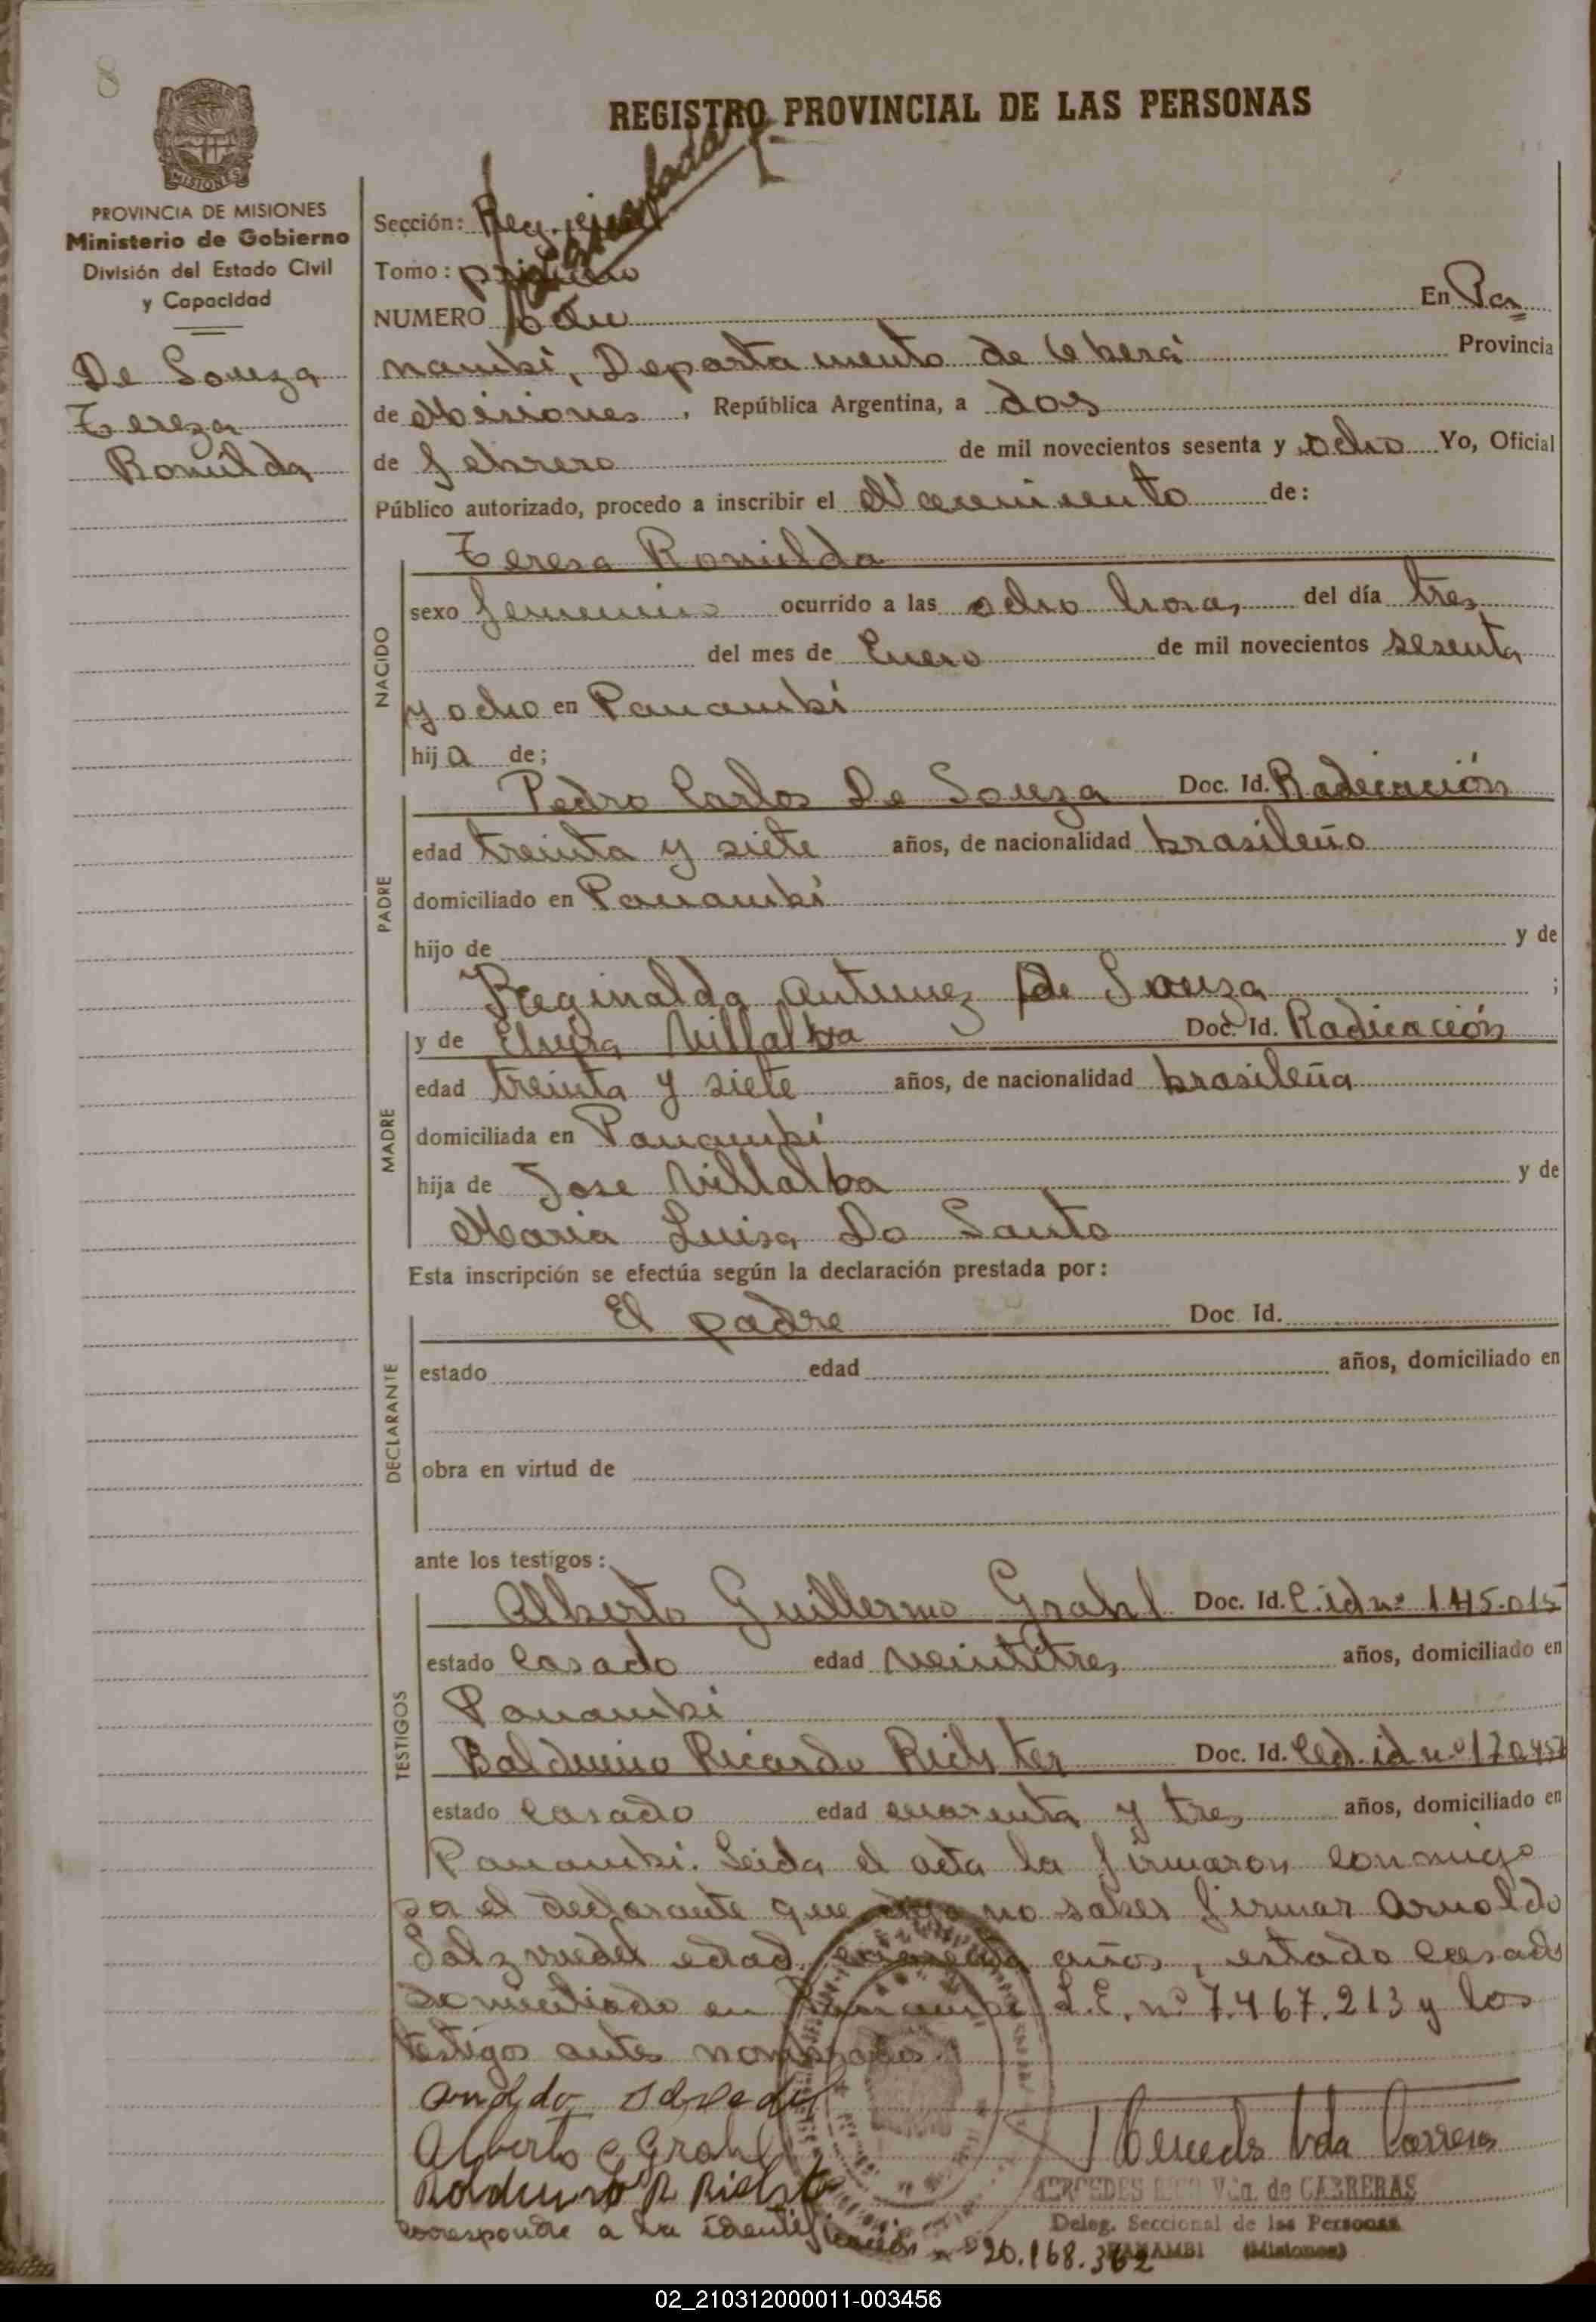 8
REGISTRO PROVINCIAL DE LAS PERSONAS
MISIONES
PROVINCIA DE MISIONES
Ministerio de Gobierno
División del Estado Civil
y Capacidad
De Souza
Tereza
Romilda
Sección: Reg.
Tomo: primero
NUMERO En Pa
nambí, Departamento de Oberá Provincia
de Misiones, República Argentina, a dos
de febrero de mil novecientos sesenta y ocho Yo, Oficial
Público autorizado, procedo a inscribir el Nacimiento de:
NACIDO
Teresa Romilda
sexo femenino ocurrido a las ocho horas, del día tres
del mes de Enero de mil novecientos sesenta
y ocho en Panambí
hija de;
PADRE
Pedro Carlos De Souza Doc. Id. Radicación
edad treinta y siete años, de nacionalidad brasileño
domiciliado en Panambí
hijo de y de
Reginalda Antunez de Souza ;
MADRE
y de Elvira Villalba Doc. Id. Radicación
edad treinta y siete años, de nacionalidad brasileña
domiciliada en Panambí
hija de Jose Villalba y de
Maria Luisa Do Santo
Esta inscripción se efectúa según la declaración prestada por:
DECLARANTE
El padre Doc. Id.
estado edad años, domiciliado en
obra en virtud de
ante los testigos:
TESTIGOS
Alberto Guillermo Grahl Doc. Id. C.id nº 145.015
estado casado edad veintitres años, domiciliado en
Panambi
Balduino Ricardo Richter Doc. Id. Ced. id nº
estado casado edad cuarenta y tres años, domiciliado en
Panambí. Leida el acta la firmaron conmigo
por el declarante que dijo no saber firmar Arnoldo
edad años, estado casado
domiciliado en Panambi L.E. nº 7.467.213 y los
testigos antes nombrados.
Alberto G Grahl
Balduino R Richter
Mercedes Vda Carreras
MERCEDES Vda. de CARRERAS
Deleg. Seccional de las Personas
PANAMBI (Misiones)
corresponde a la identificación nº 20.168.362
02_210312000011-003456